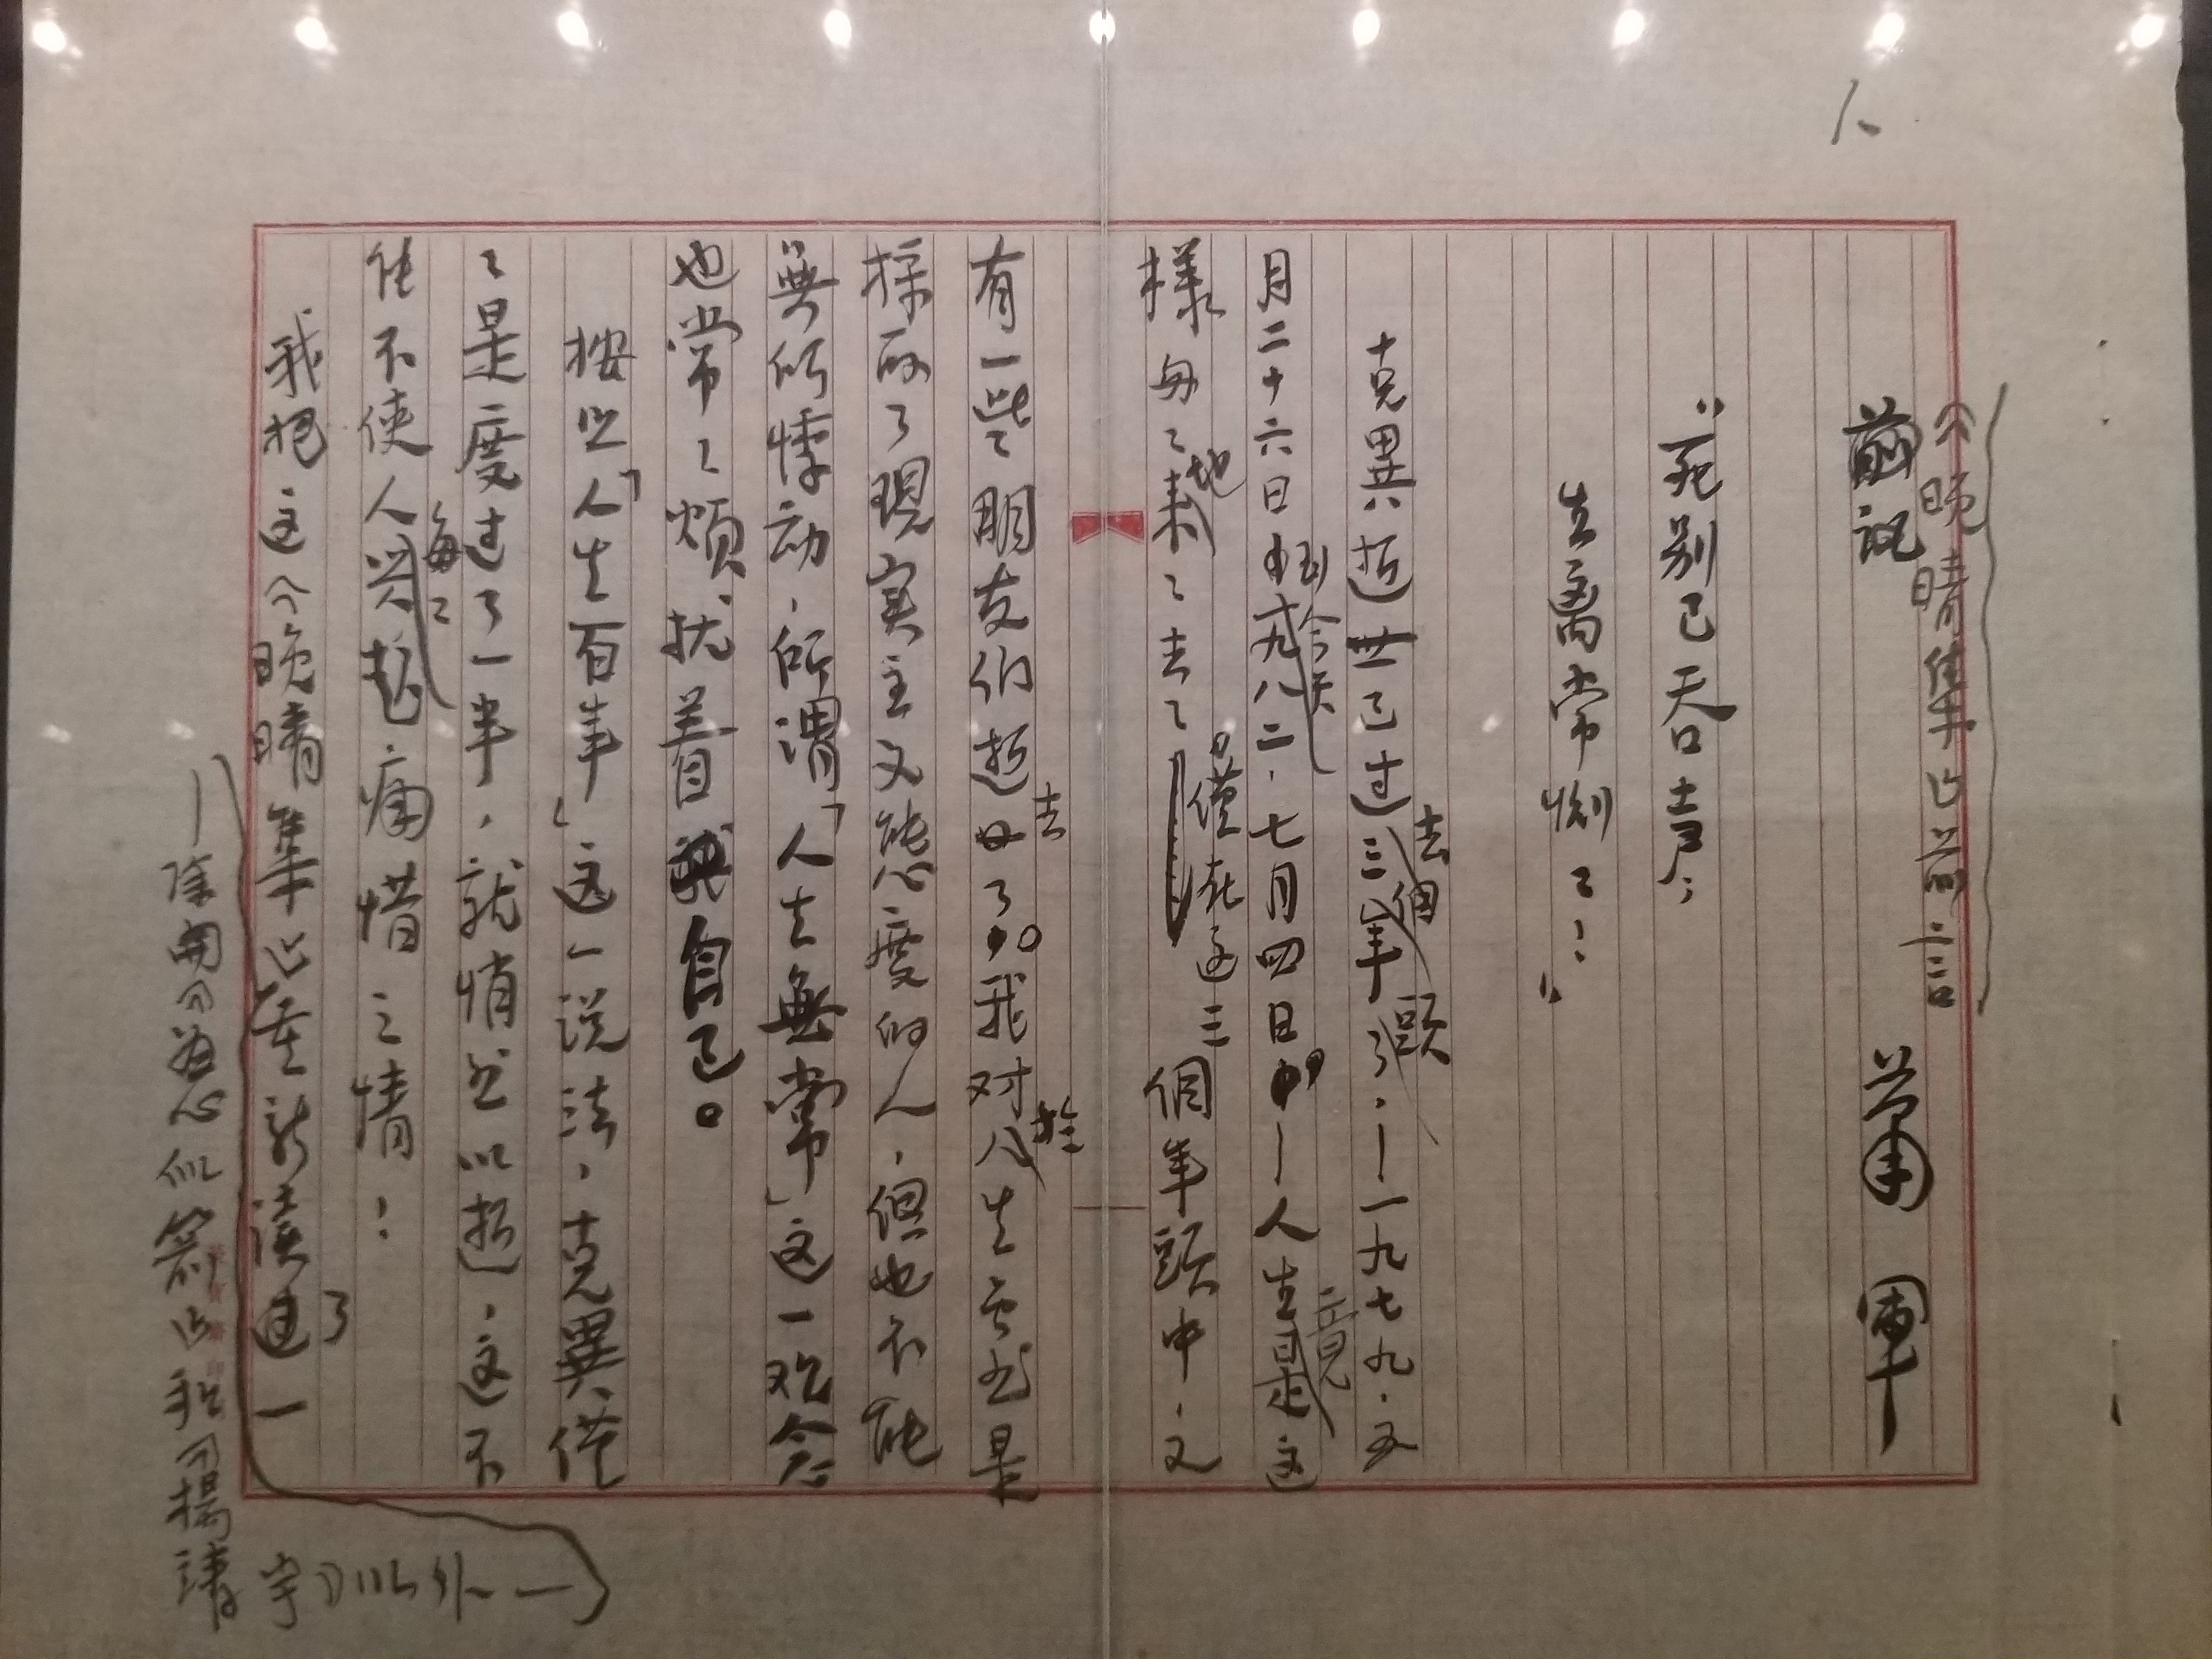 1、
《晚晴集》前言
前記 蕭軍
“死别已吞声，
生离常恻々！”
克異逝世已过去三個年頭了，—一九七九·五
月二十六日到今天一九八二·七月四日—人生竟這
樣匆々地来了去了！僅在这三個年頭中，又
有一些朋友们逝去了。我对於人生虽然是
採取了現实主义態度的人，但也不能
無所悸动，所謂「人生無常」这一观念
也常々烦扰着我自己。
按照「人生百年」这一说法，克異僅
々是度过了一半，就悄然以逝，这不
能不使人每々兴起痛惜之情！
我把这《晚晴集》重新读了一
—除開《
字》以外—